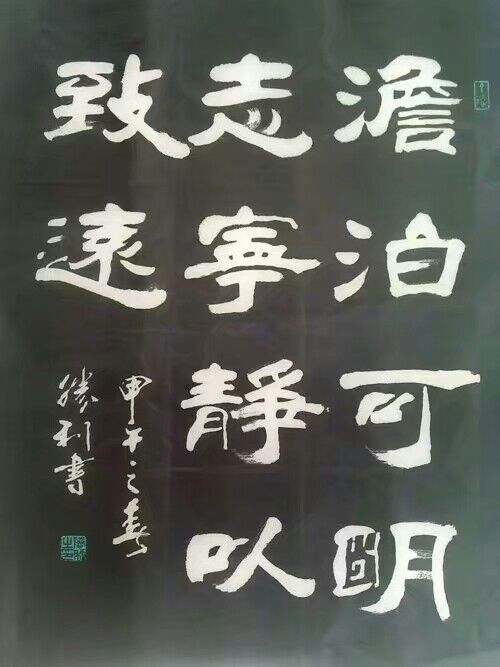 澹泊可明
志寧靜㕥
致遠
甲午之春
勝利書